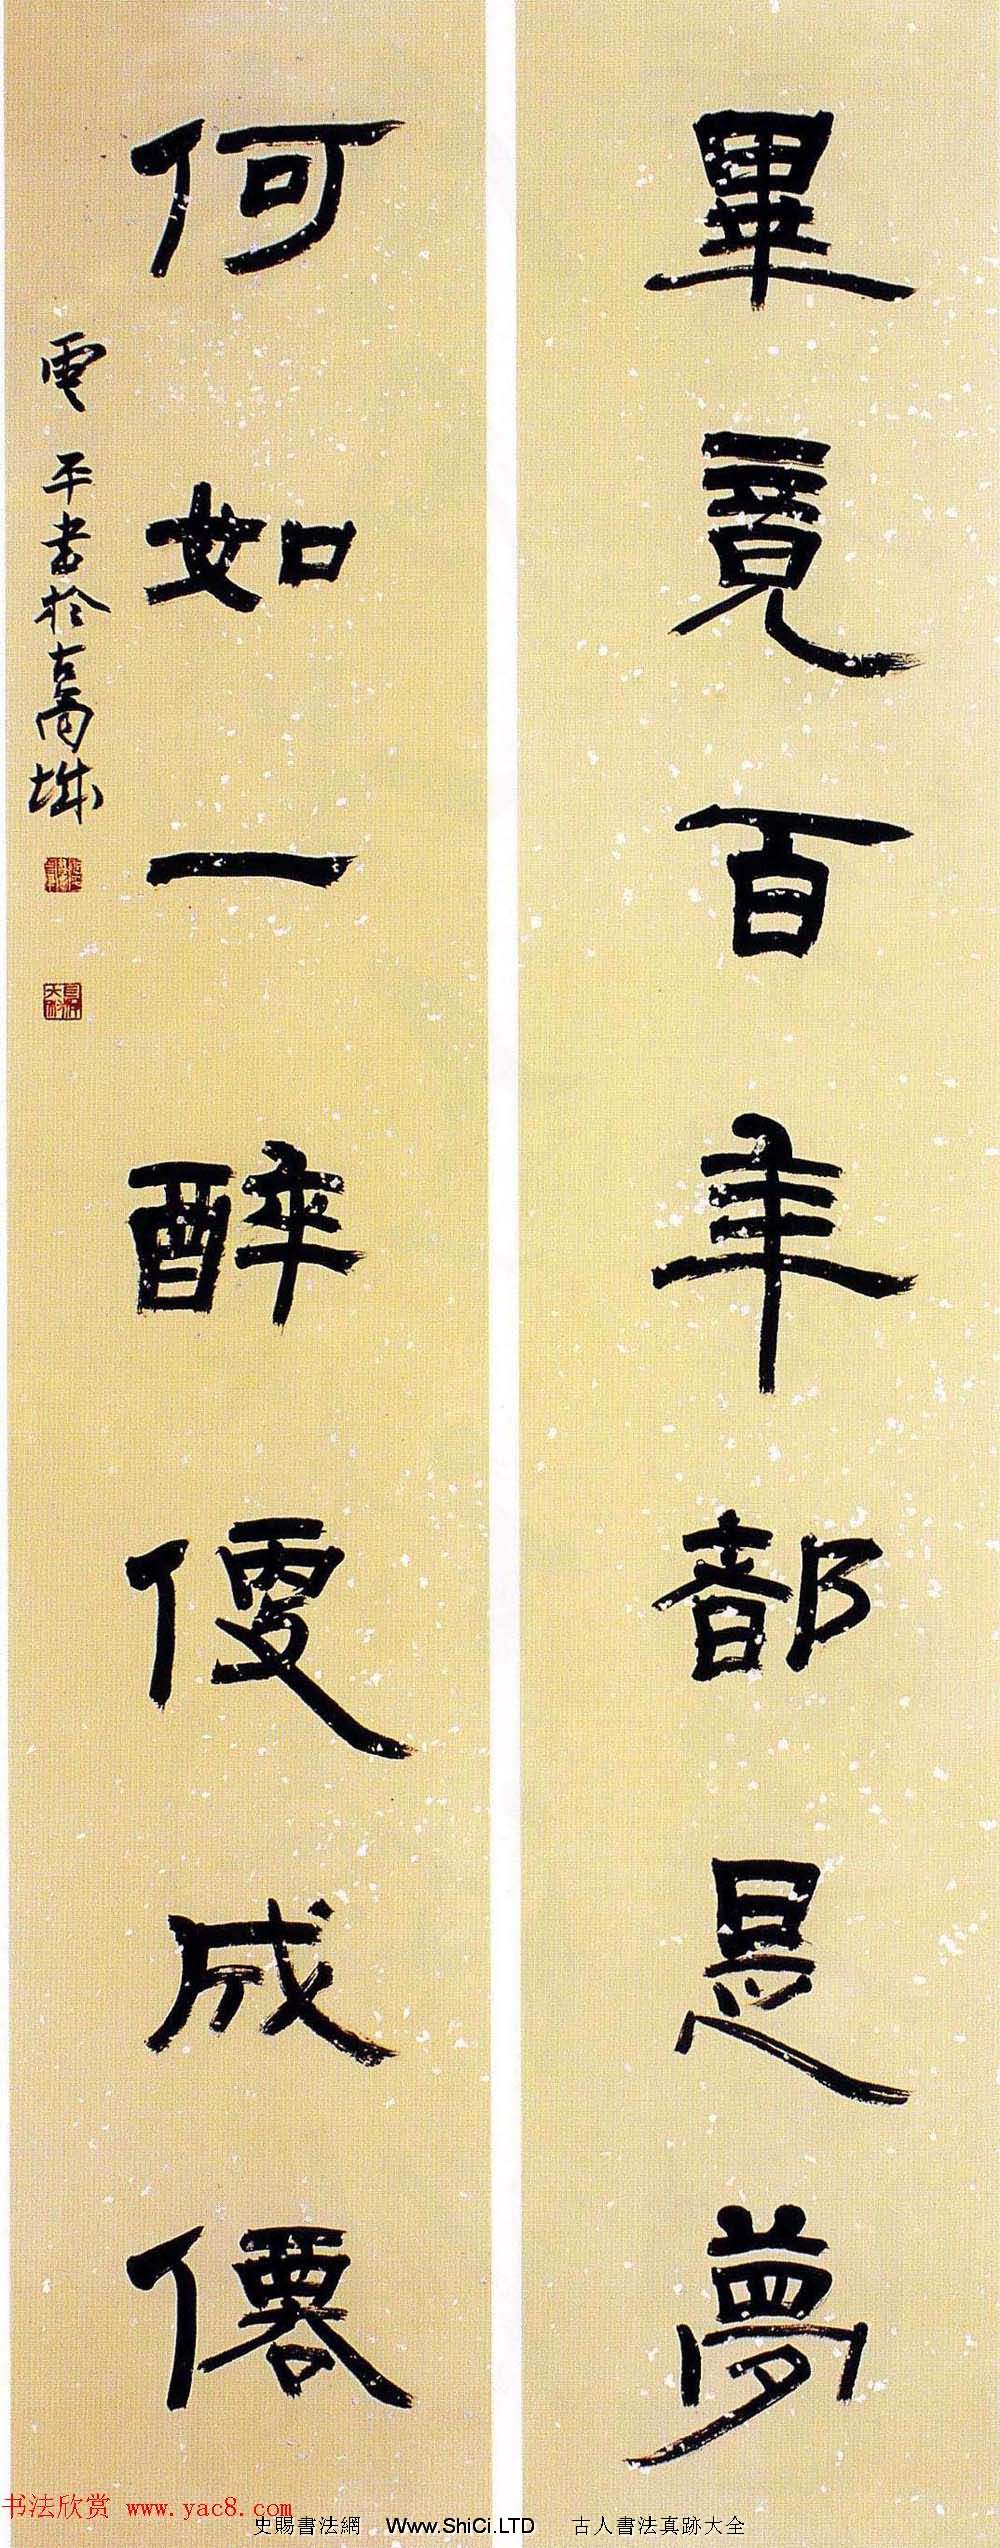 畢竟百年都是夢
何如一醉便成僊
雲平书於古商城
书法欣赏 www.yac8.com
史賜書法網 Www.ShiCi.LTD 古人書法真跡大全